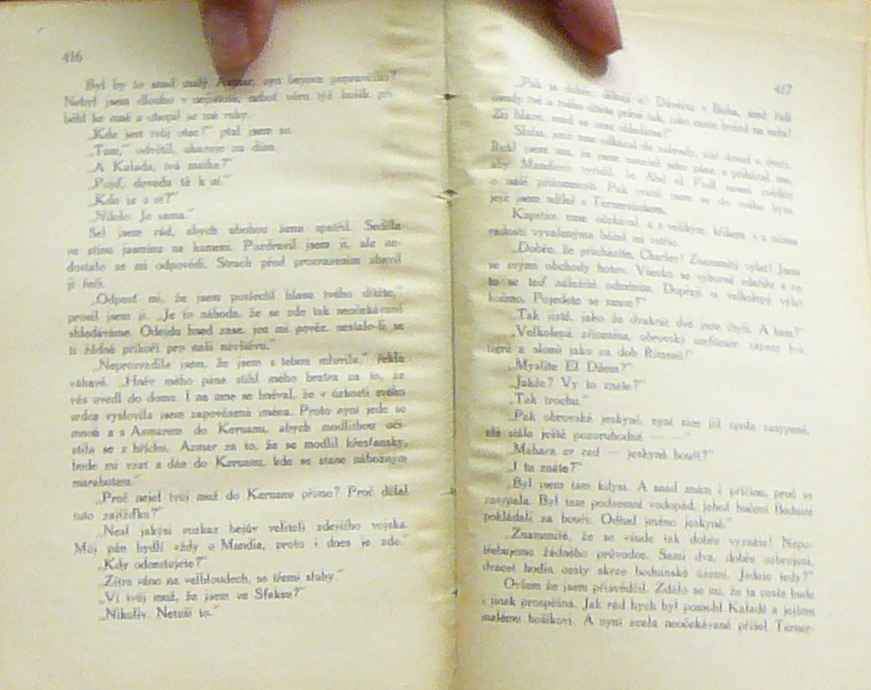 416
Byl by to snad malý Azmar, syn bejova
Nebyl jsem dlouho v nejistotě, neboť věru týž hošík při-
běhl ke mně a chopil se mé ruky.
„Kde jest tvůj otec?“ ptal jsem se.
„Tam,“ odvětil, ukazuje na dům.
„A Kalada, tvá matka?“
„Pojď, dovedu tě k ní.“
„Kdo je s ní?“
„Nikdo. Je sama.“
Šel jsem rád, abych ubohou ženu spatřil. Seděla
ve stínu jasmínu na kameni. Pozdravil jsem ji, ale ne-
dostalo se mi odpovědi. Strach před prozrazením zbavil
ji řeči.
„Odpusť mi, že jsem poslechl hlasu tvého dítěte,“
prosil jsem ji. „Je to náhoda, že se zde tak neočekávaně
shledáváme. Odejdu hned zase, jen mi pověz, nestalo-li se
ti žádné příkoří pro naši návštěvu.“
„Neprozradila jsem, že jsem s tebou mluvila,“ řekla
váhavě. „Hněv mého pána stihl mého bratra za to, že
vás uvedl do domu. I na mne se hněval, že v úzkosti svého
srdce vyslovila jsem zapovězená jména. Proto nyní jede se
mnou a s Azmarem do Keruanu, abych modlitbou oči-
stila se z hříchu. Azmar za to, že se modlil křesťansky,
bude mi vzat a dán do Keruanu, kde se stane nábožným
marabutem.“
„Proč nejel tvůj muž do Keruanu přímo? Proč dělal
tuto zajížďku?“
„Nesl jakýsi rozkaz bejův veliteli zdejšího vojska.
Můj pán bydlí vždy u Mandia, proto i dnes je zde.“
„Kdy odcestujete?“
„Zítra ráno na velbloudech, se třemi sluhy.“
„Ví tvůj muž, že jsem ve Sfaksu?“
„Nikoliv. Netuší to.“
417
„Pak je dobře, děkuji ti! Důvěřuj v Boha, jenž řídí
osudy tvé a mého dítěte právě tak, jako osudy hvězd na nebi!
Zda hlaze, snad se zase shledáme!“
Sluha, jenž mne odkázal do zahrady, stál dosud u dveří.
Řekl jsem mu, že jsem nenašel jeho pána, a požádal jsem,
aby Mandiovi vyřídil, že
o naší přítomnosti. Pak vrátil jsem se do svého bytu,
jejž jsem sdílel s Turnersticken.
Kapitán mne očekával a s velikým křikem a s mírou
radosti vyvalenýma běžel mi vstříc.
„Dobře, že přicházíte, Charley! Znamenitý výlet! Jsem
se svými obchody hotov. Všecko se výborně zdařilo a za
to se teď náležitě odměním. Dopřeji si velkolepý výlet
Pojedete se mnou?“
„Tak jistě, jako že dvakrát dvě jsou čtyři. A kam?“
„Velkolepá zřícenina, obrovský amfiteatr, zápasy býků,
tygrů a slonů jako za dob Římanů!“
„Myslíte El Džem?“
„Jakže? Vy to znáte?“
„Tak trochu.“
„Pak obrovské jeskyně, nyní sice již zpola zasypané,
ale stále ještě pozoruhodné — —“
„Mahara er rad — jeskyně bouří?“
„I ta znáte?“
„Byl jsem tam kdysi. A snad znám i příčinu, proč se
zasypala. Byl tam podzemní vodopád, jehož hučení Beduini
pokládali za bouři. Odtud jméno jeskyně.“
„Znamenité, že se všude tak dobře vyznáte! Nepo-
třebujeme žádného průvodce. Sami dva, dobře ozbrojeni,
dvacet hodin cesty skrze beduinské území. Jedete tedy?“
Ovšem že jsem přisvědčil. Zdálo se mi, že ta cesta bude
i jinak prospěšná. Jak rád bych byl pomohl Kaladě a jejímu
malému hošíkovi. A nyní zcela neočekávaně přišel Turner-